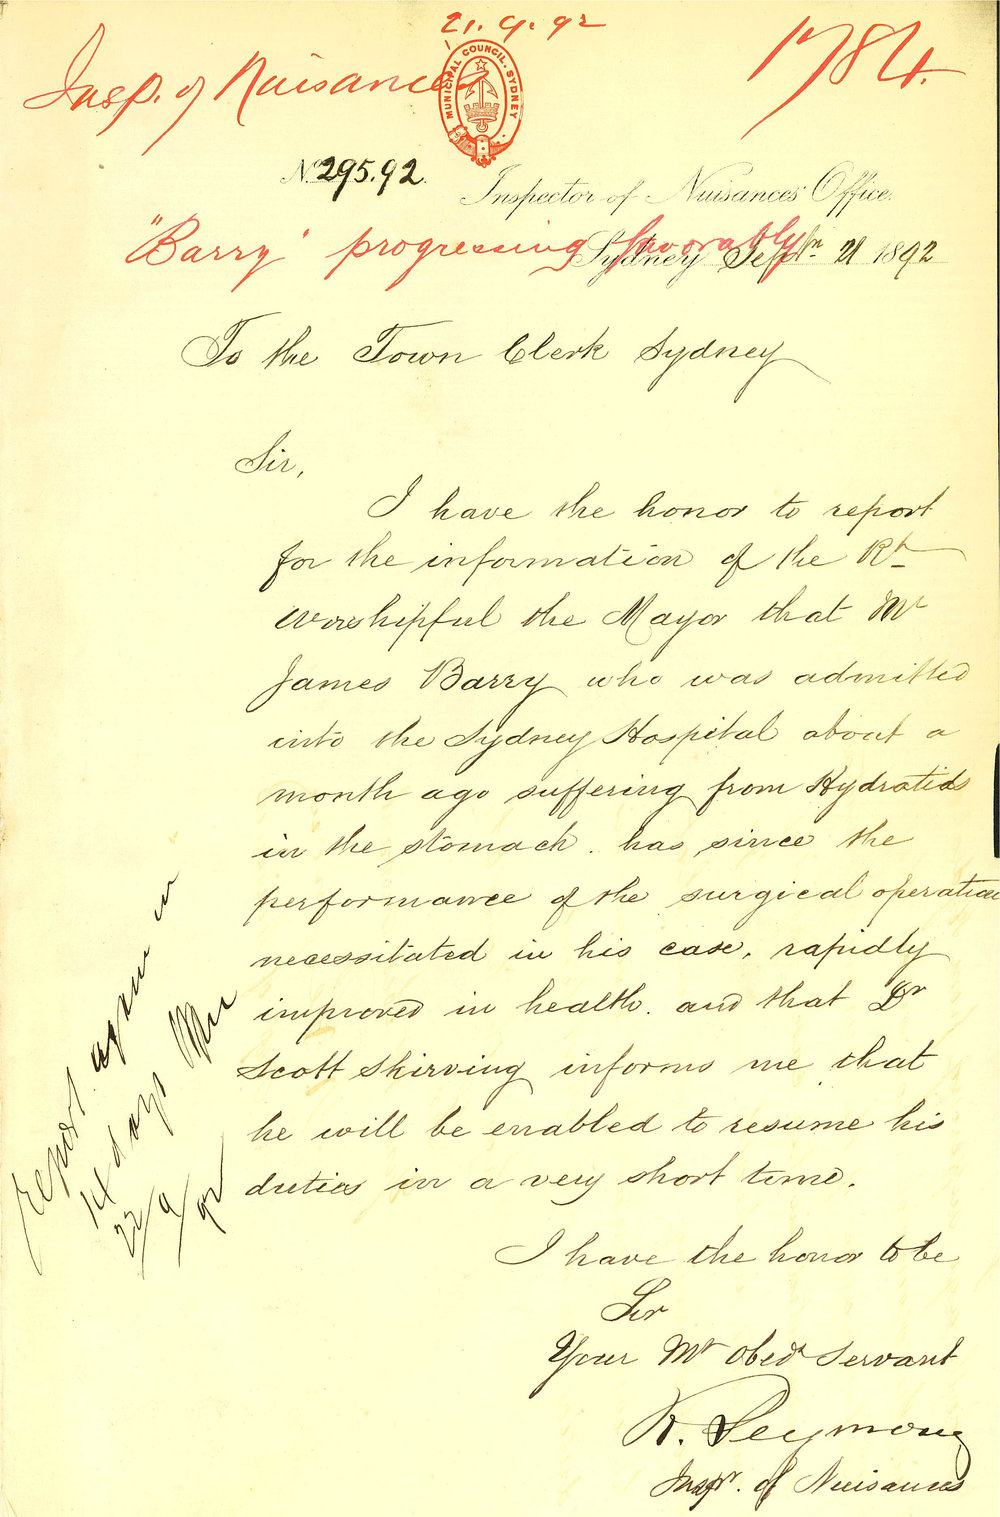 21.9.92
Insp. of Nuisances
1784.
MUNICIPAL COUNCIL. SYDNEY
No 295.92.
Inspector of Nuisances' Office.
"Barry" progressing favorably
Sydney Septr 21 1892
To the Town Clerk Sydney
Sir,
I have the honor to report
for the information of the Rt
Worshipful the Mayor that Mr
James Barry who was admitted
into the Sydney Hospital about a
month ago suffering from Hydratids
in the stomach. has since the
performance of the surgical operation
necessitated in his case, rapidly
improved in health. and that Dr
Scott Skirving informs me that
he will be enabled to resume his
duties in a very short time.
report again in
14 days
22/9/92
I have the honor to be
Sir
Your Mt Obedt Servant
R. Seymour
Inspr. of Nuisances